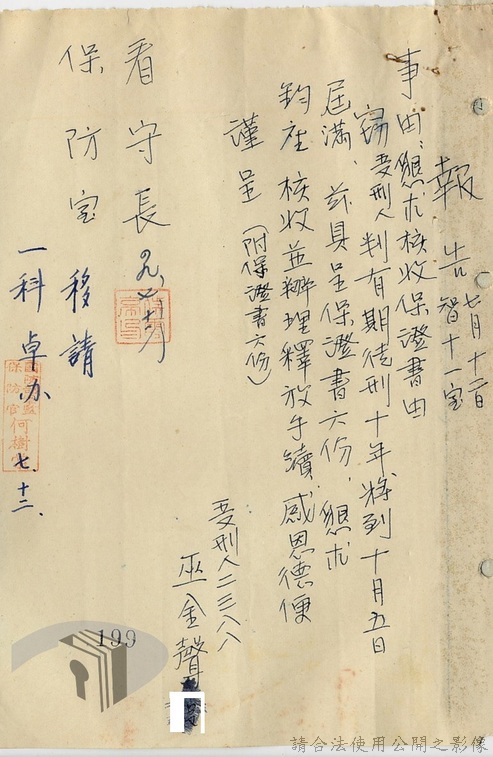 報告 七月十二日
智十一室
事由:懇求核收保證書由
竊受刑人判有期徒刑十年將到十月五日
屆滿、茲具呈保證書六份,懇求
鈞座核收並辦理釋放手續,感恩德便
謹呈(附保證書六份)
看守長
保防室
移請
一科卓办
七、十二、
保防官何樹
受刑人二三八八
巫金聲
199
請合法使用公開之影像